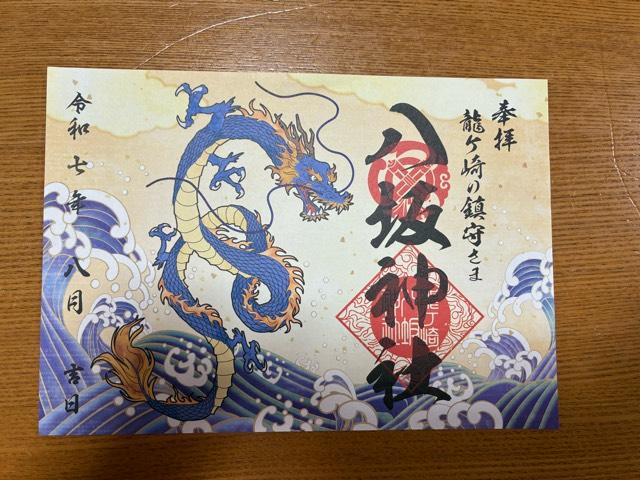 奉拝
龍ケ崎の鎮守さま
八坂神社
令和七年八月 吉日